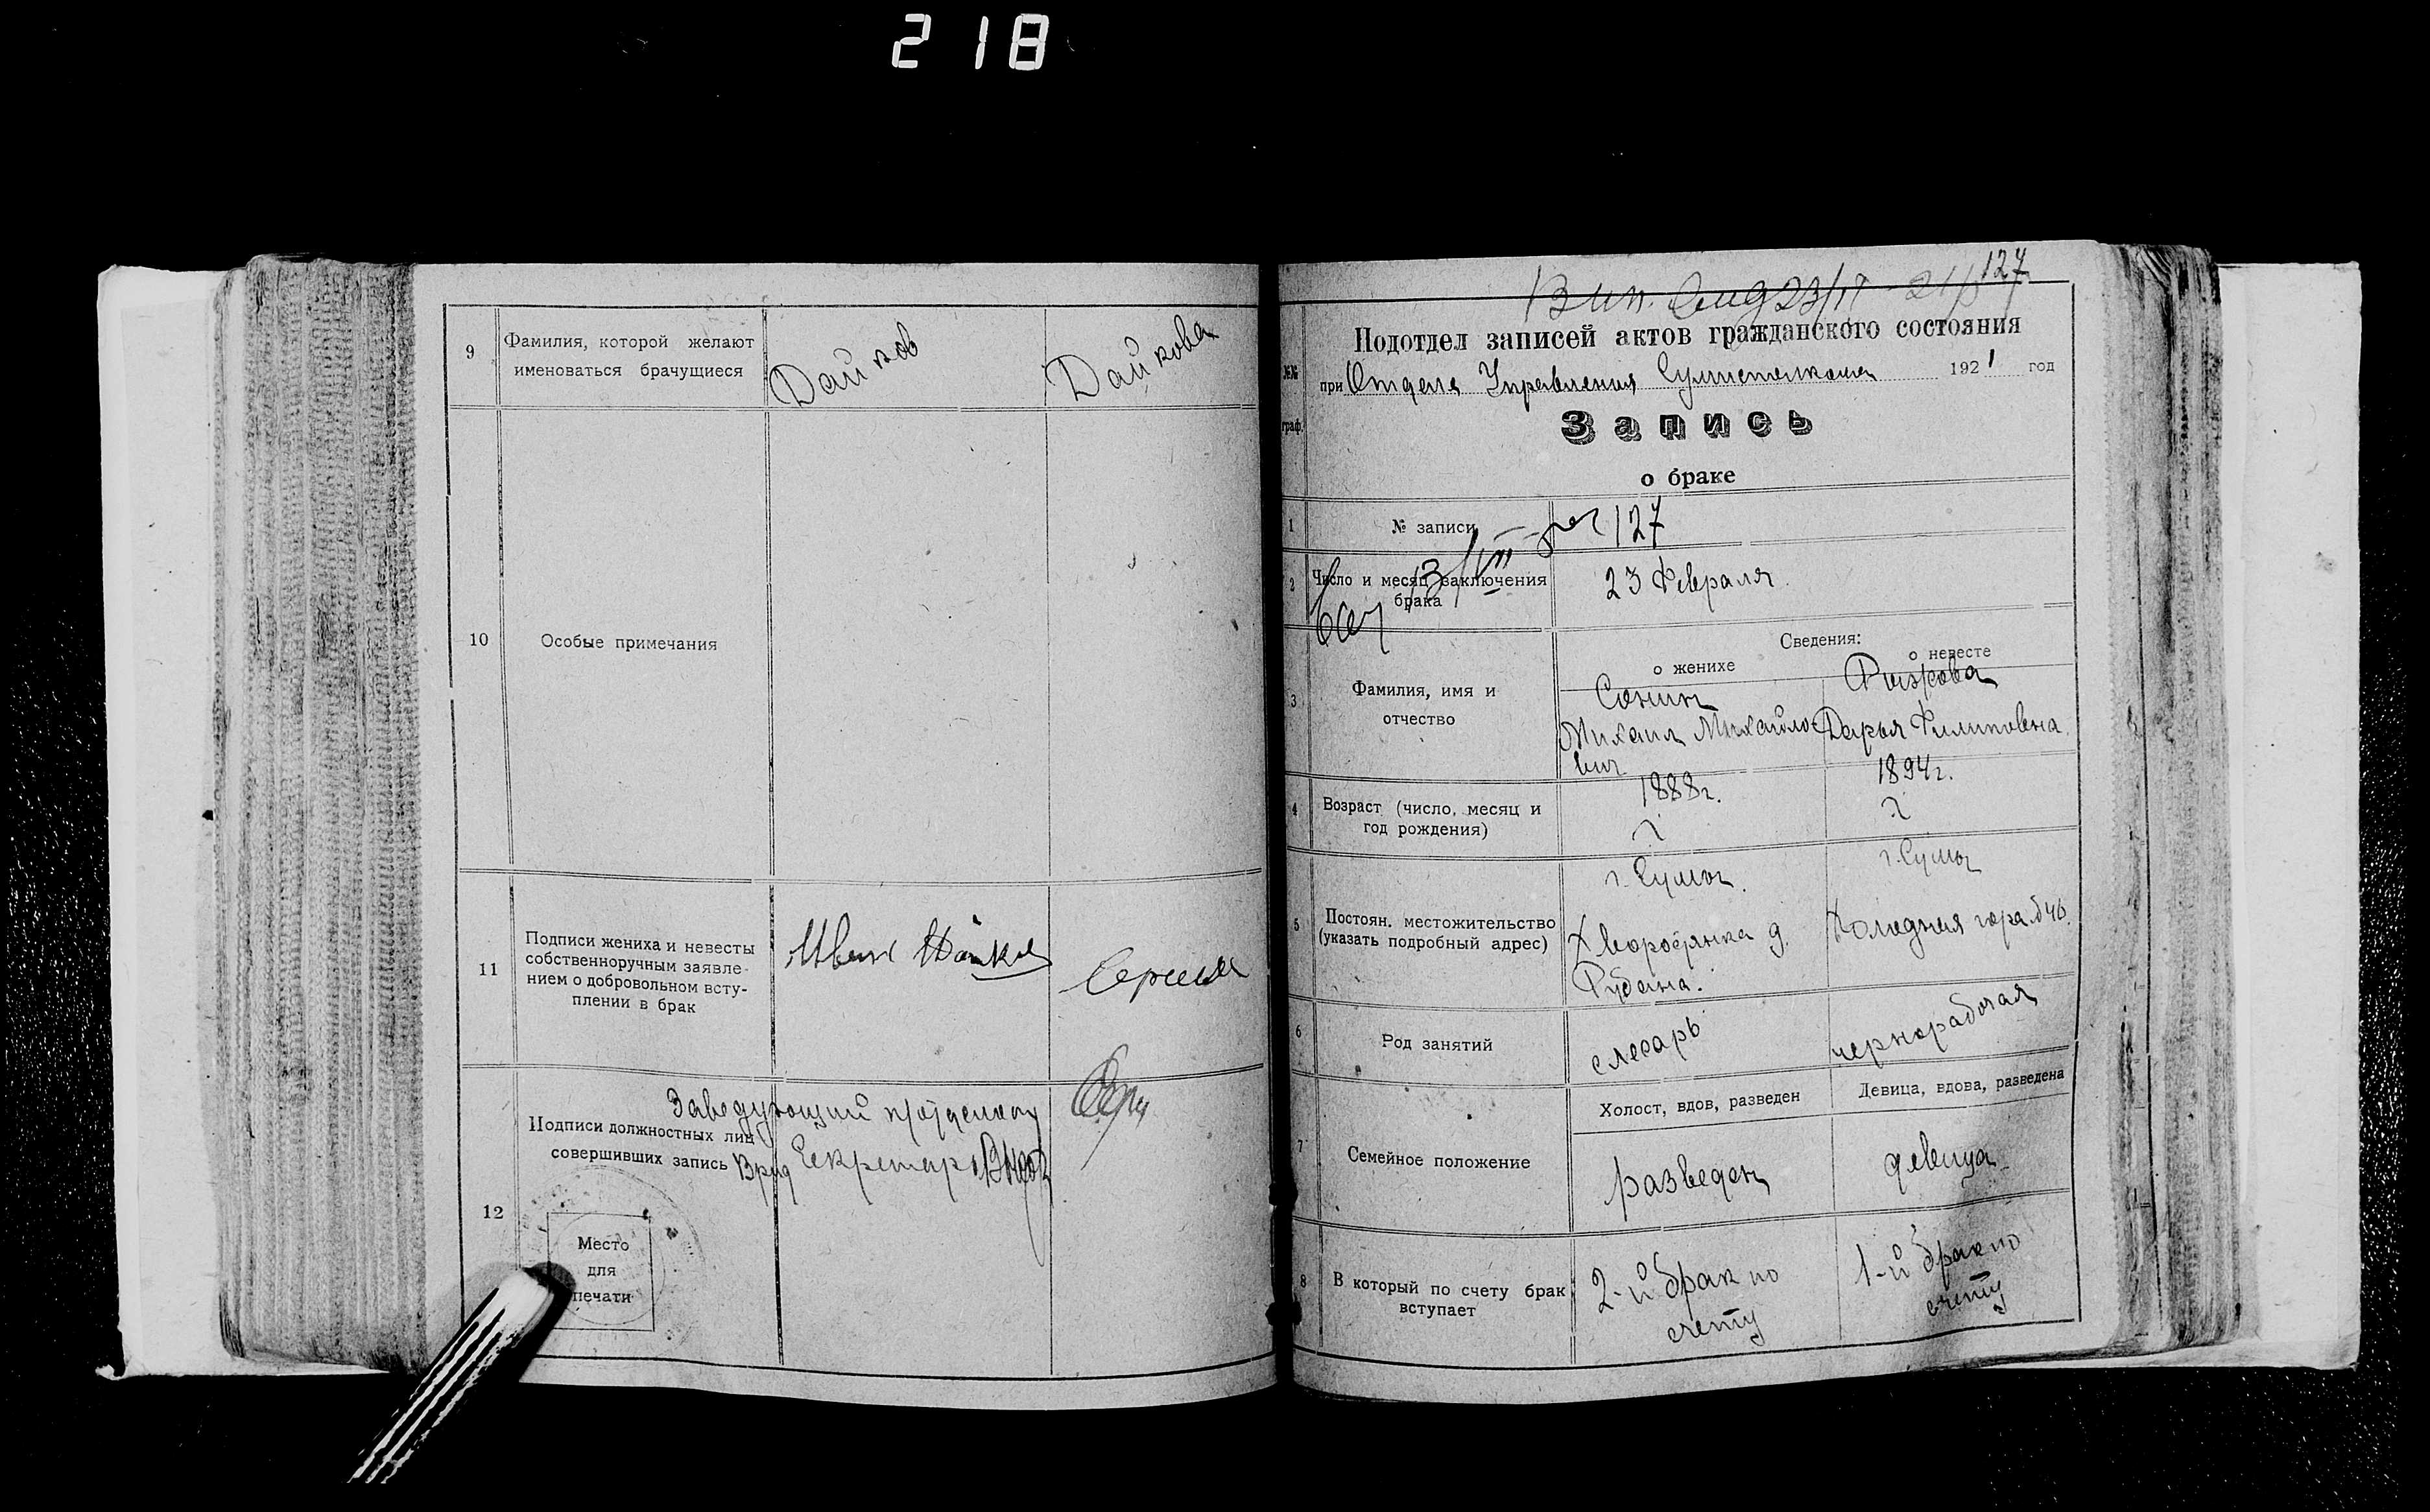 218
9
Фамилия, которой желают
именоваться брачущиеся
Дайков
Дайкова
10
Особые примечания
11
Подписи жениха и невесты
собственноручным заявле-
нием о добровольном всту-
плении в брак
Иван
12
Заведующий
Подписи должностных лиц
совершивших запись
Врид Секретарь
Место
для
печати
127
Подотдел записей актов гражданского состояния
№№
граф.
при Отделе Управления 1921 год
Запись
о браке
1
№ записи
127
2
Число и месяц заключения
брака
23 Февраля
Сведения:
о женихе
о невесте
3
Фамилия, имя и
отчество
Сонин
Михаил Михайло-
вич
Рыжкова
Дарья Филиповна
4
Возраст (число, месяц и
год рождения)
1888г.
?
1894г.
?
5
Постоян. местожительство
(указать подробный адрес)
г. Сумы
г. Сумы
Холодная гора
6
Род занятий
слесарь
чернорабочая
7
Семейное положение
Холост, вдов, разведен
Девица, вдова, разведена
разведен
девица
8
В который по счету брак
вступает
2-й брак по
счету
1-й брак по
счету